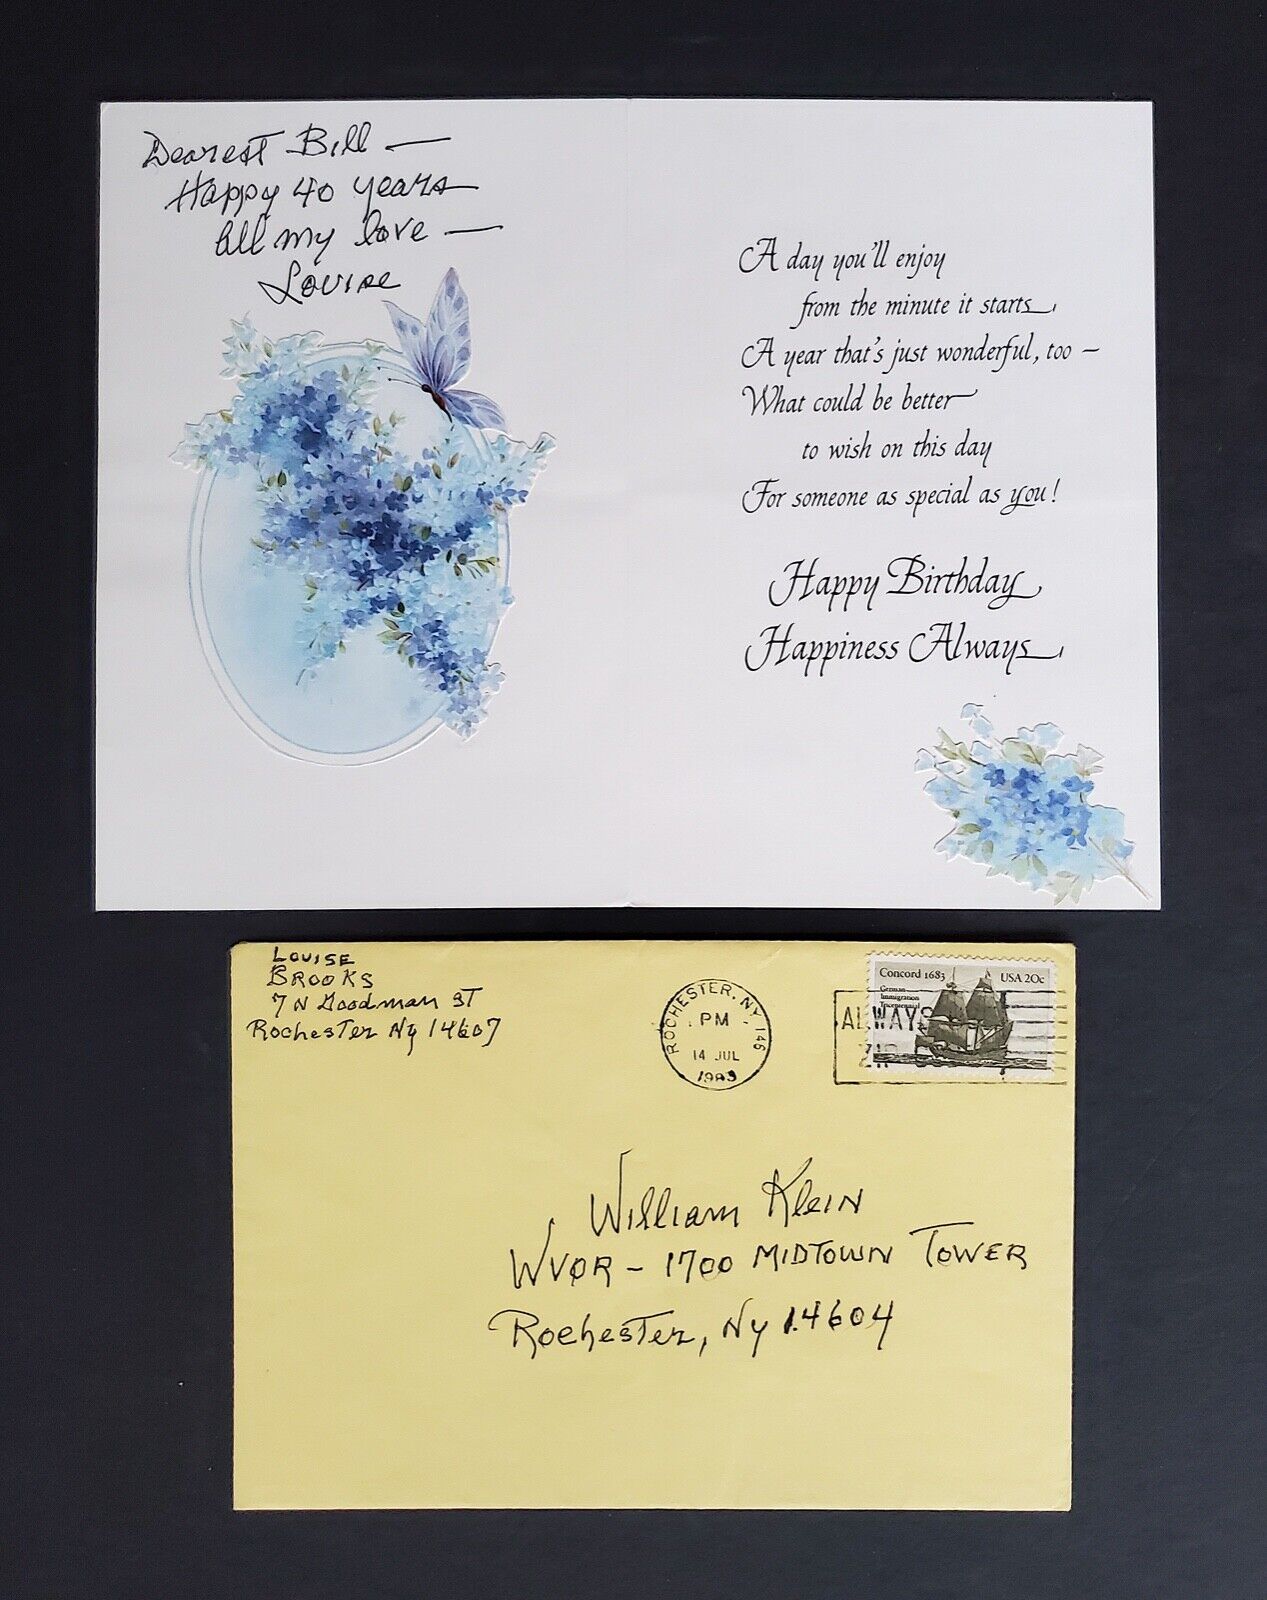 Dearest Bill —
Happy 40 years
All my love —
Louise
A day you'll enjoy
from the minute it starts,
A year that's just wonderful, too —
What could be better
to wish on this day
For someone as special as you!
Happy Birthday
Happiness Always
LOUISE
BROOKS
7 N Goodman ST
Rochester Ny 14607
ROCHESTER, NY 146
PM
14 JUL
1983
Concord 1683
USA 20c
German
Immigration
Tricentennial
ALWAYS
ZIP
William Klein
WVOR – 1700 MIDTOWN TOWER
Rochester, Ny 14604